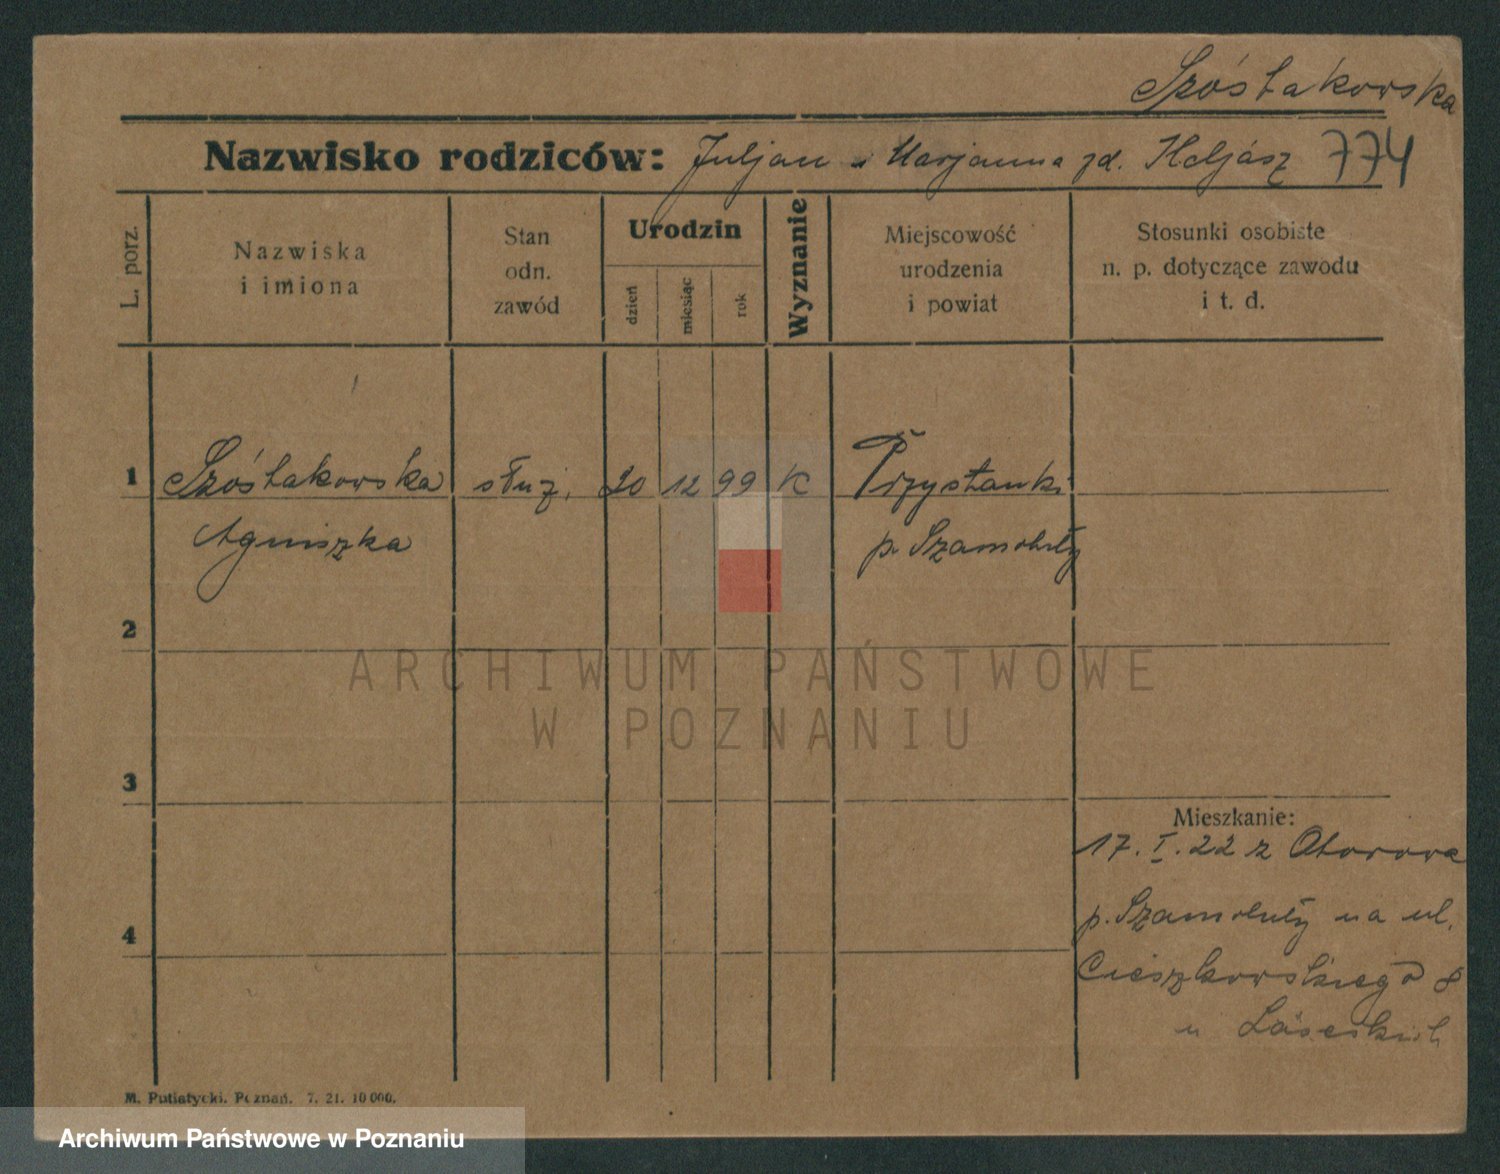 Szóstakowska
Nazwisko rodziców: Juljan i Marjanna zd. Heljasz 774
L. porz.
Nazwiska
i imiona
Stan
odn.
zawód
Urodzin
dzień
miesiąc
rok
Wyznanie
Miejscowość
urodzenia
i powiat
Stosunki osobiste
n. p. dotyczące zawodu
i t. d.
1 Szóstakowska służ. 20 12 99 K Przystanki
Agniszka p. Szamotuły
2
ARCHIWUM PAŃSTWOWE
W POZNANIU
3
Mieszkanie:
17. I. 22 z Otorowa
p. Szamotuły na ul.
4
Cieszkowskiego 8
u
M. Putiatycki. Poznań. 7. 21. 10 000.
Archiwum Państwowe w Poznaniu